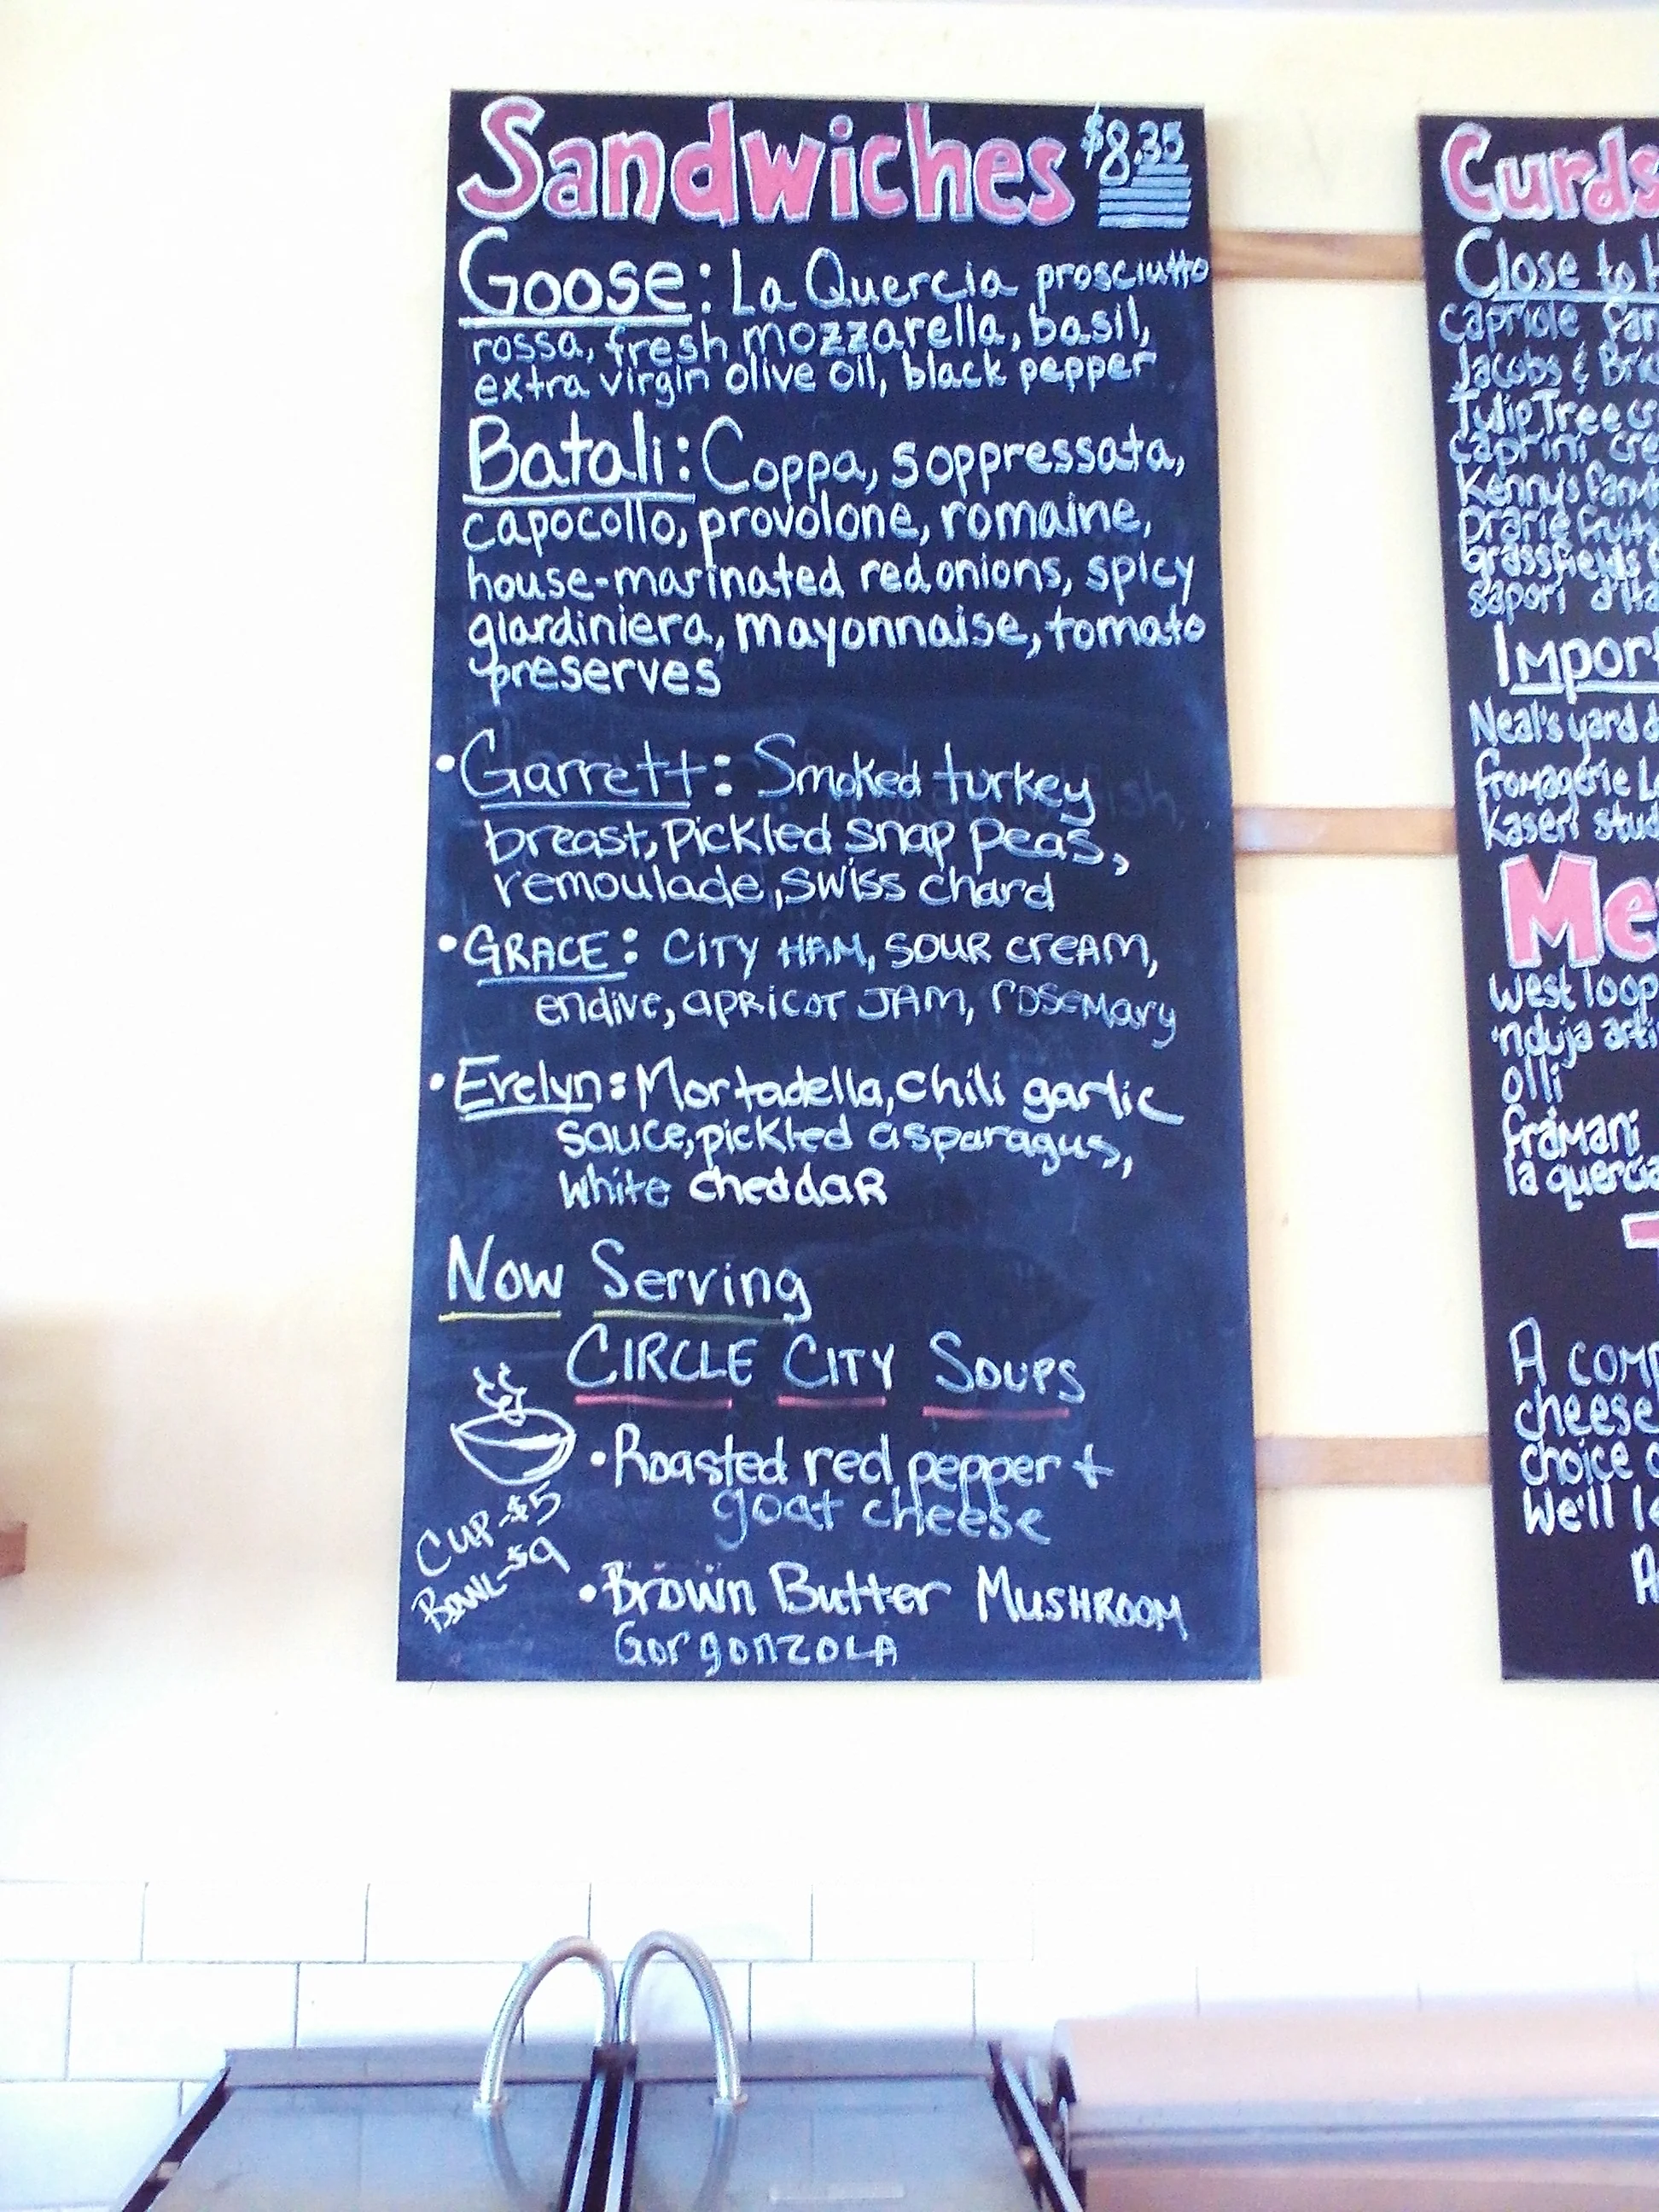 Sandwiches $8.35
Goose: La Quercia prosciutto
rossa, fresh mozzarella, basil,
extra virgin olive oil, black pepper
Batali: Coppa, soppressata,
capocollo, provolone, romaine,
house-marinated red onions, spicy
giardiniera, mayonnaise, tomato
preserves
•Garrett: Smoked turkey
breast, Pickled snap peas,
remoulade, swiss chard
•GRACE: CITY HAM, SOUR CREAM,
endive, APRICOT JAM, rosemary
•Evelyn: Mortadella, chili garlic
sauce, pickled asparagus,
white cheddar
Now Serving
CIRCLE CITY SOUPS
•Roasted red pepper +
goat cheese
CUP-$5
BOWL-$9
•Brown Butter MUSHROOM
GorgonzoLA
Curds
Close to
capriole
Jacobs &
Tulip Tree
caprini
Kenny's
prarie fruits
grassfields
sapori
Neal's yard
fromagerie
kaseri
west loop
'nduja
olli
framani
la quercia
A
cheese
choice
We'll